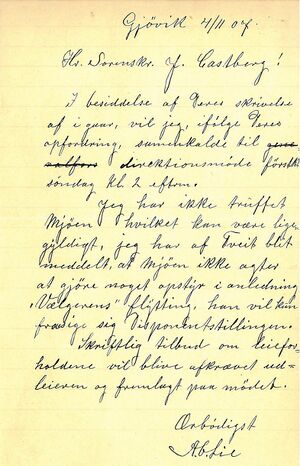 Gjövik 4/11 07.
Hr. Sorenskr. J. Castberg!
I besiddelse af Deres skrivelse
af i gaar, vil jeg, ifølge Deres
opfordring, sammenkalde til
direktionsmöde förstk.
söndag kl. 2 eftm.
Jeg har ikke truffet
Mjöen hvilket kan være lige-
gyldigt, jeg har af Tveit blit
meddelt, at Mjöen ikke agter
at gjöre noget opstyr i anledning
"Vælgerens" flytting, han vil kun
frasige sig Disponentstillingen.
Skriftlig tilbud om leiefor-
holdene vil blive afkrævet ud-
leieren og fremlagt paa mödet.
Ærbödigst
A.B. Lie